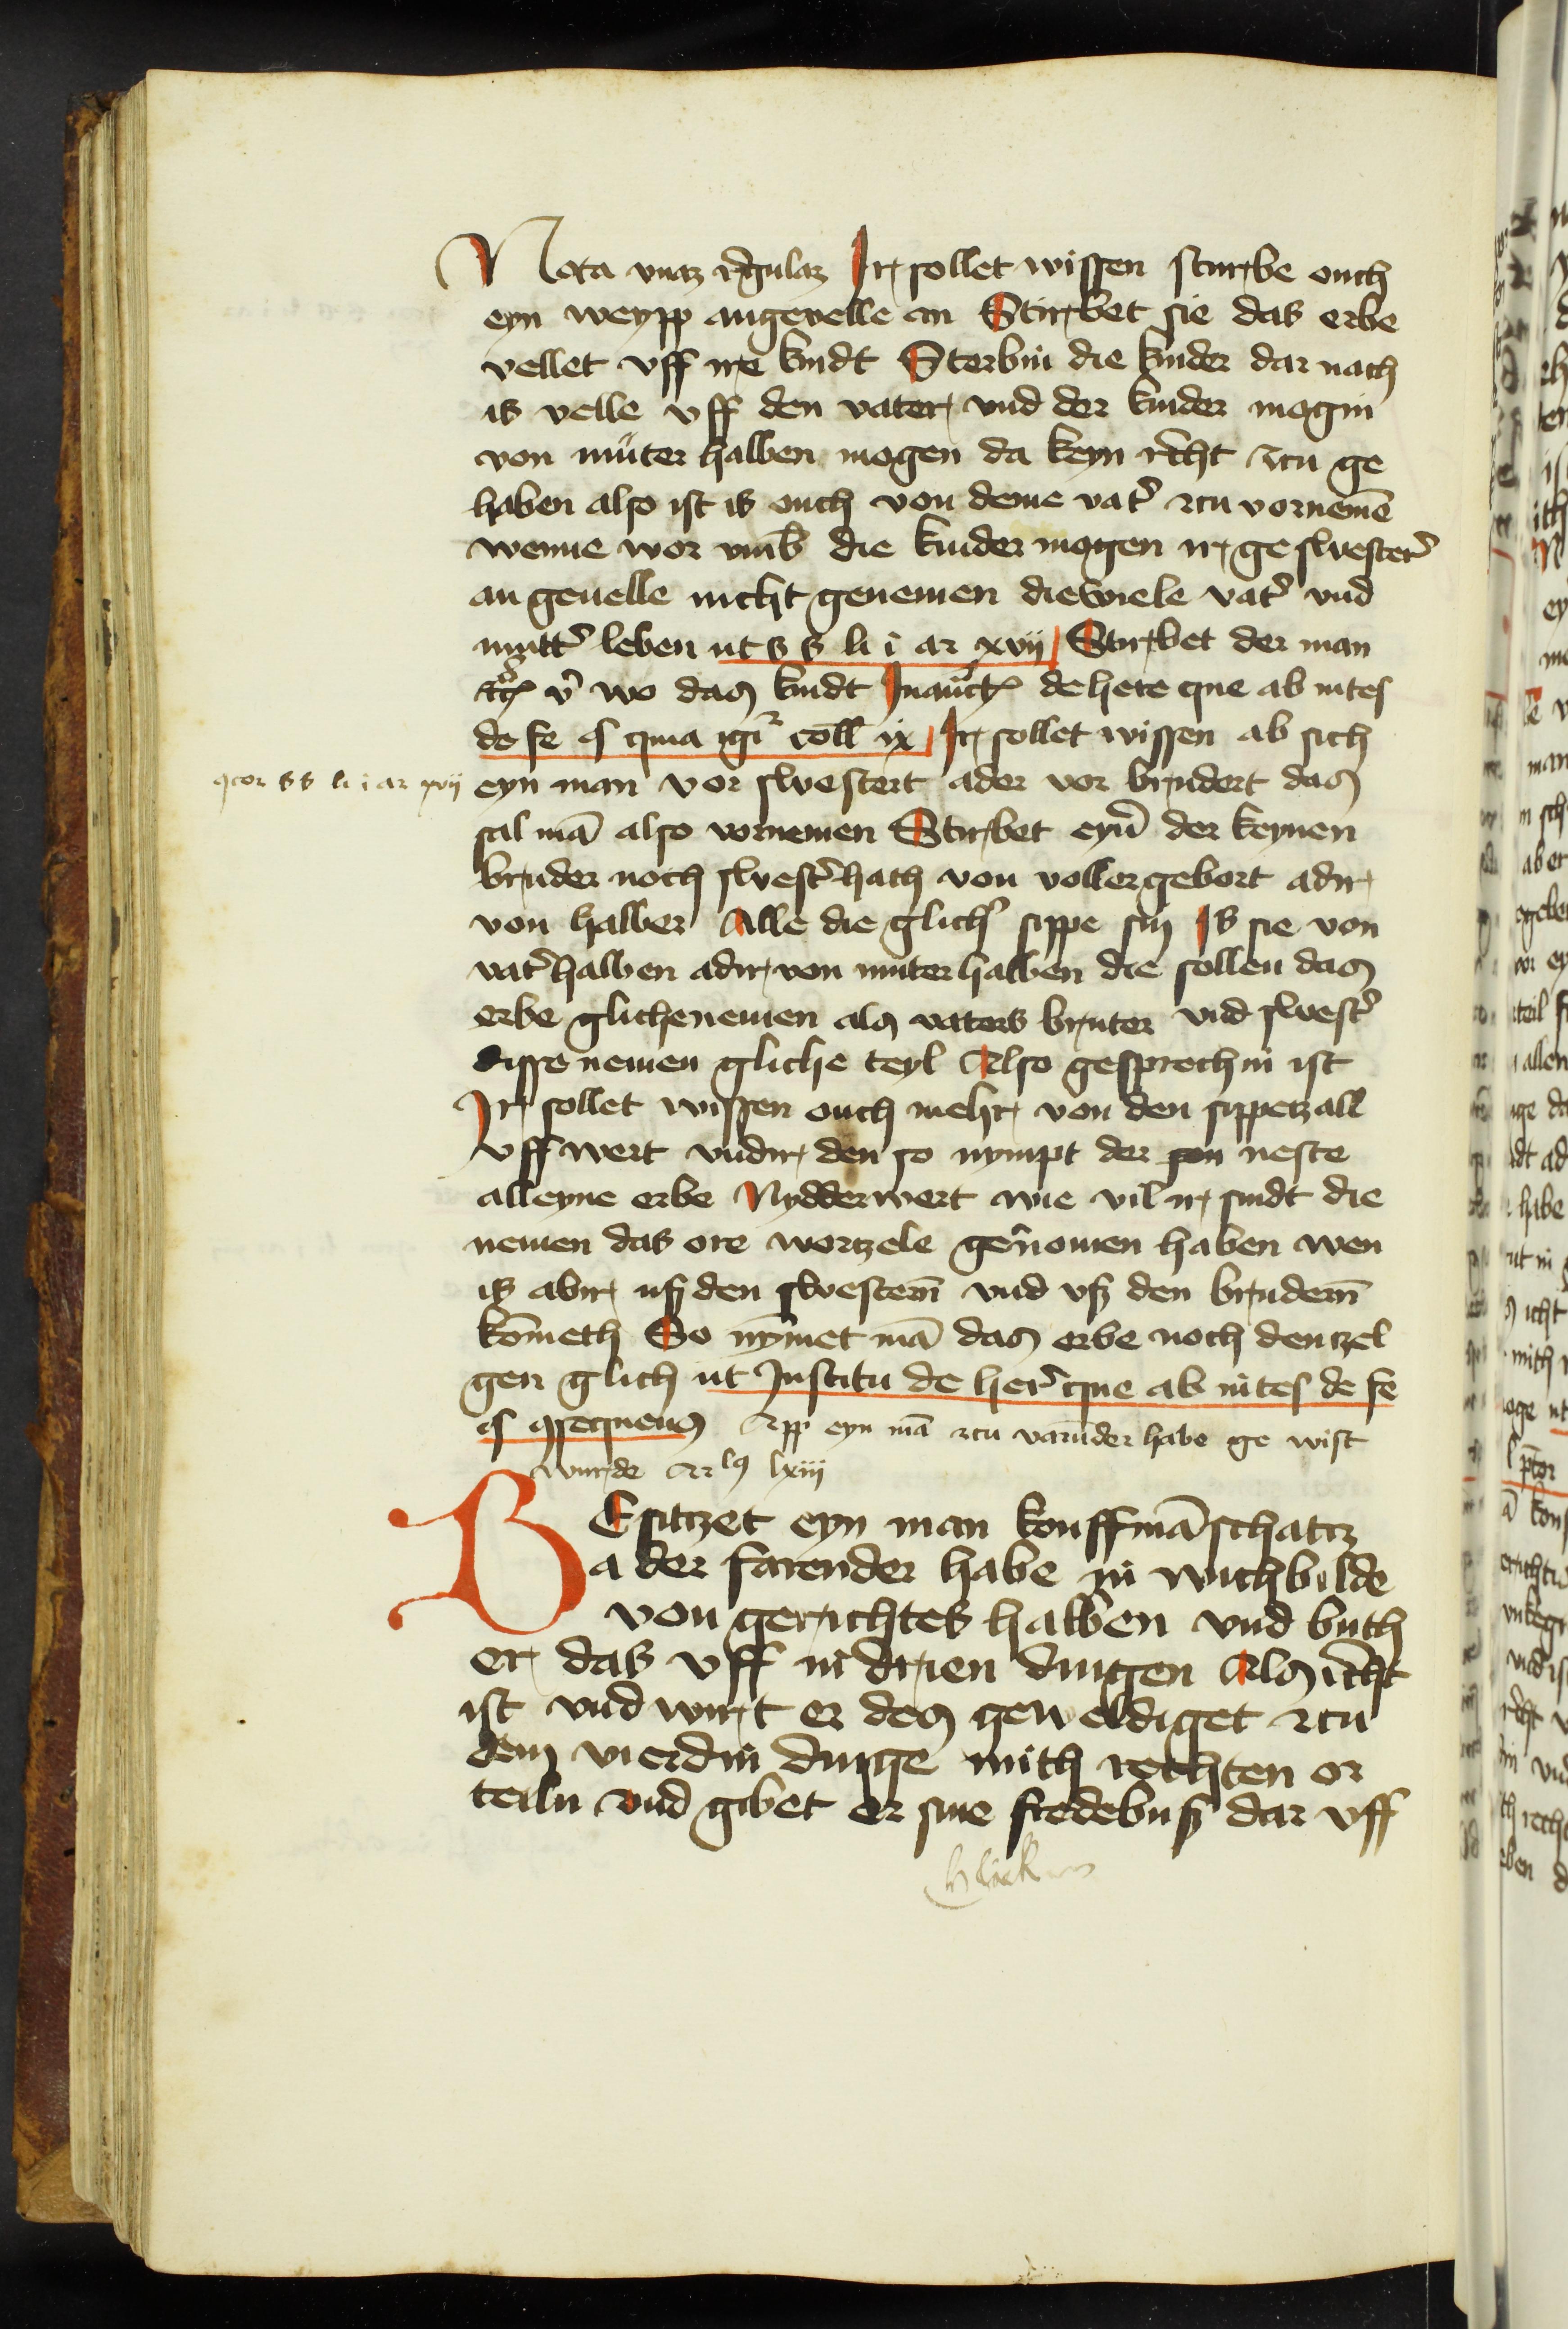 Nota vnaz regulaz Ir sollet wissen sturbe ouch
eyn weypp angevelle an Stirbet sie das erbe
vellet vff ire kindt Sterbin die kinder dar nach
is velle vff den vater vnd der kinder mogin
von muter halben mogen da keyn recht czu ge
haben also ist is ouch von deme vat̾ czu vornemē
wenne wor vmb die kinder mogen ir geswester̾
an geuelle nicht genemen diewiele vat̾ vnd
mutt̾ leben ut s s li i ar xvij Stirbet der man
v̾ wo das kindt de here que ab intes
de fe coll ix Ir sollet wissen ab sich
9cor ss li i ar xvij
eyn man vor swestert ader vor brudert das
sal mā also vornemen Stirbet eyn̄ der keynen
bruder noch swest̾ hath von voller gebort adir
von halber Alle die glich̾ sippe sin Is sie von
vat̾ halben adir von muter halben die sollen das
erbe gliche nemen als vaters bruter vnd swest̾
disse nemen gliche teyl Also gesprochin ist
Ir sollet wissen ouch mehr von den sippetzall
vff wert vndir den so nympt der neste
alleyne erbe Nydderwert wie vil ir sindt die
nemen das ore wortzele genomen haben wen
is abir usz den swestern̄ vnd vsz den brudern̄
kōmeth So nȳmet mā das erbe noch den tzel
gen glich ut Institu de her̾ que ab intes de fe
9sequens App eyn mā czu varūder habe ge wist
wurde ar lxiij
BEsitzet eyn man kouffmāschatz
ader farender habe in wichbilde
von gerichtes halben vnd buth
er das vff in drien dingen Als recht
ist vnd wirt er des geweldiget czu
dem vierdin dinge mith rechten or
teiln vnd gibet er sine fredebusz dar vff